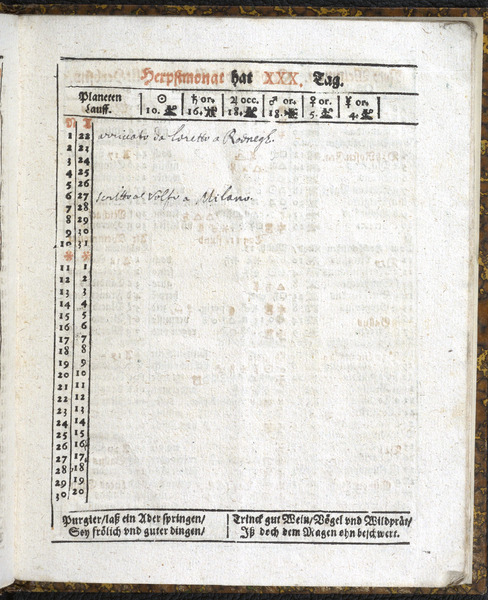 Herpstmonat hat XXX. Tag.
Planeten Lauff. ☉ 10. ♄ or. 16. ♃ occ. 18. ♂ or. 18. ♀ or. 5. ☿ or. 4.
1 22 arrivato da Loretto a
2 23
3 24
4 25
5 26
6 27 scritto al Volto a Milano.
7 28
8 29
9 30
10 31
11 1
12 2
13 3
14 4
15 5
16 6
17 7
18 8
19 9
20 10
21 11
22 12
23 13
24 14
25 15
26 16
27 17
28 18
29 19
30 20
Purgier/laß ein Ader springen/
Sey frölich vnd guter dingen/
Trinck gut Wein/Vögel vnd Wildprät/
Iß doch dem Magen ohn beschwert.